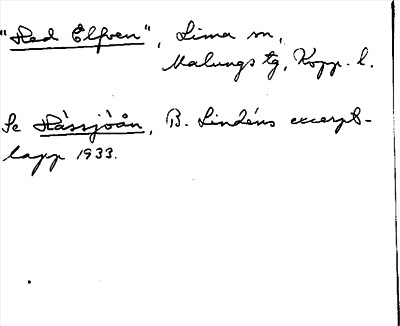 "Hed Elfven", Lima sn,
Malungs tg, Kopp. l.
Se Hässjöån, B. Lindéns excerpt-
lapp 1933.